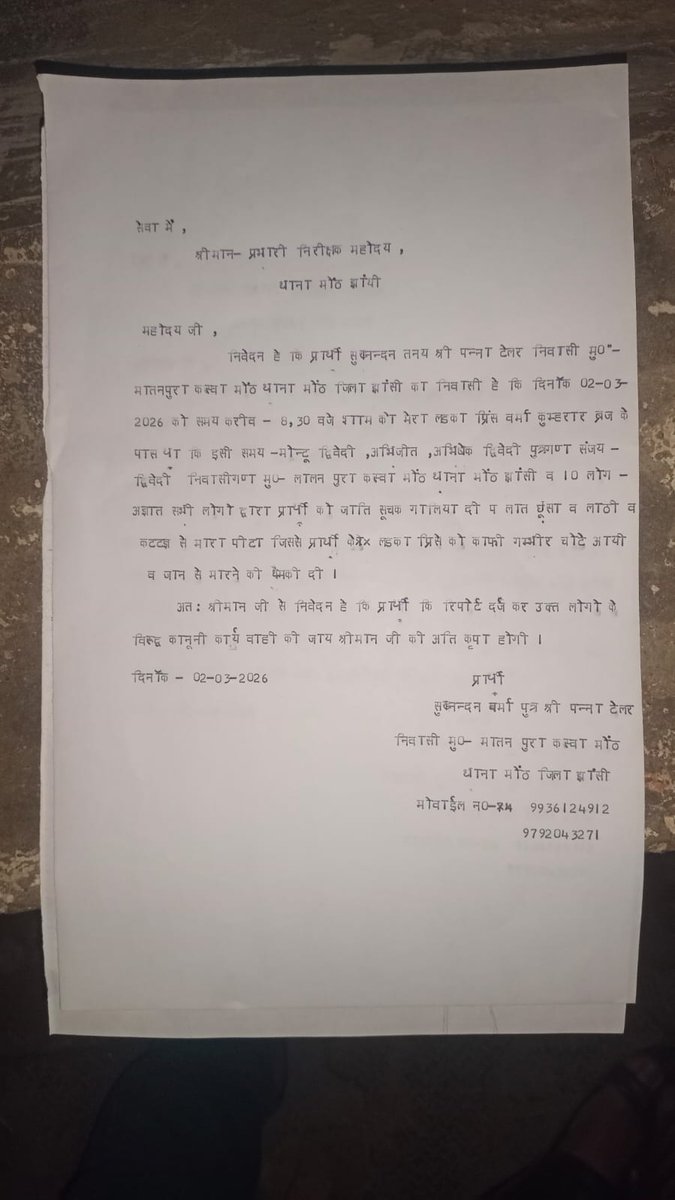 सेवा में ,
श्रीमान- प्रभारी निरीक्षक महोदय ,
थाना मोंठ झांसी
महोदय जी ,
निवेदन है कि प्रार्थी सुखनन्दन तनय श्री पन्ना टेलर निवासी मु0"-
मातनपुरा कस्वा मोंठ थाना मोंठ जिला झांसी का निवासी है कि दिनाँक 02-03-
2026 को समय करीव - 8,30 वजे शाम को मेरा लडका प्रिंस वर्मा कुम्हरार ब्रज के
पास था कि इसी समय -मोन्टू द्विवेदी ,अभिजीत ,अभिषेक द्विवेदी पुत्रगण संजय-
द्विवेदी निवासीगण मु0- लालन पुरा कस्वा मोंठ थाना मोंठ झांसी व 10 लोग -
अज्ञात सभी लोगो द्वारा प्रार्थी को जाति सूचक गालिया दी प लात घूंसा व लाठी व
से मारा पीटा जिससे प्रार्थी के लडका प्रिंसे को काफी गम्भीर चोटे आयी
व जान से मारने की धमकी दी ।
अत: श्रीमान जी से निवेदन है कि प्रार्थी कि रिपोर्ट दर्ज कर उक्त लोगो के
विरूद्व कानूनी कार्य वाही की जाय श्रीमान जी की अति कृपा होगी ।
दिनाँक - 02-03-2026
प्रार्थी
सुखनन्दन वर्मा पुत्र श्री पन्ना टेलर
निवासी मु0- मातन पुरा कस्वा मोंठ
थाना मोंठ जिला झांसी
मोवाईल न0- 9936124912
9792043271